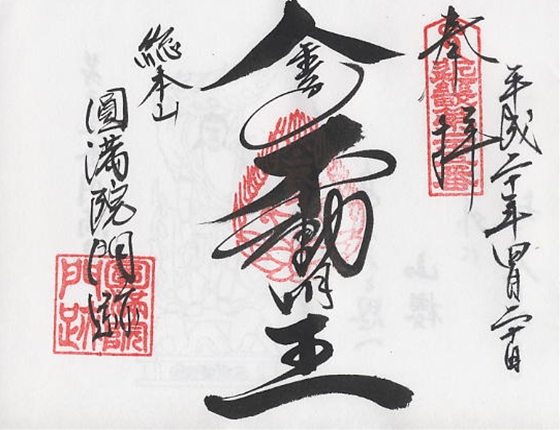 平成二十年四月二十日
奉拝
不動明王
総本山
圓満院門跡
圓満院
門跡